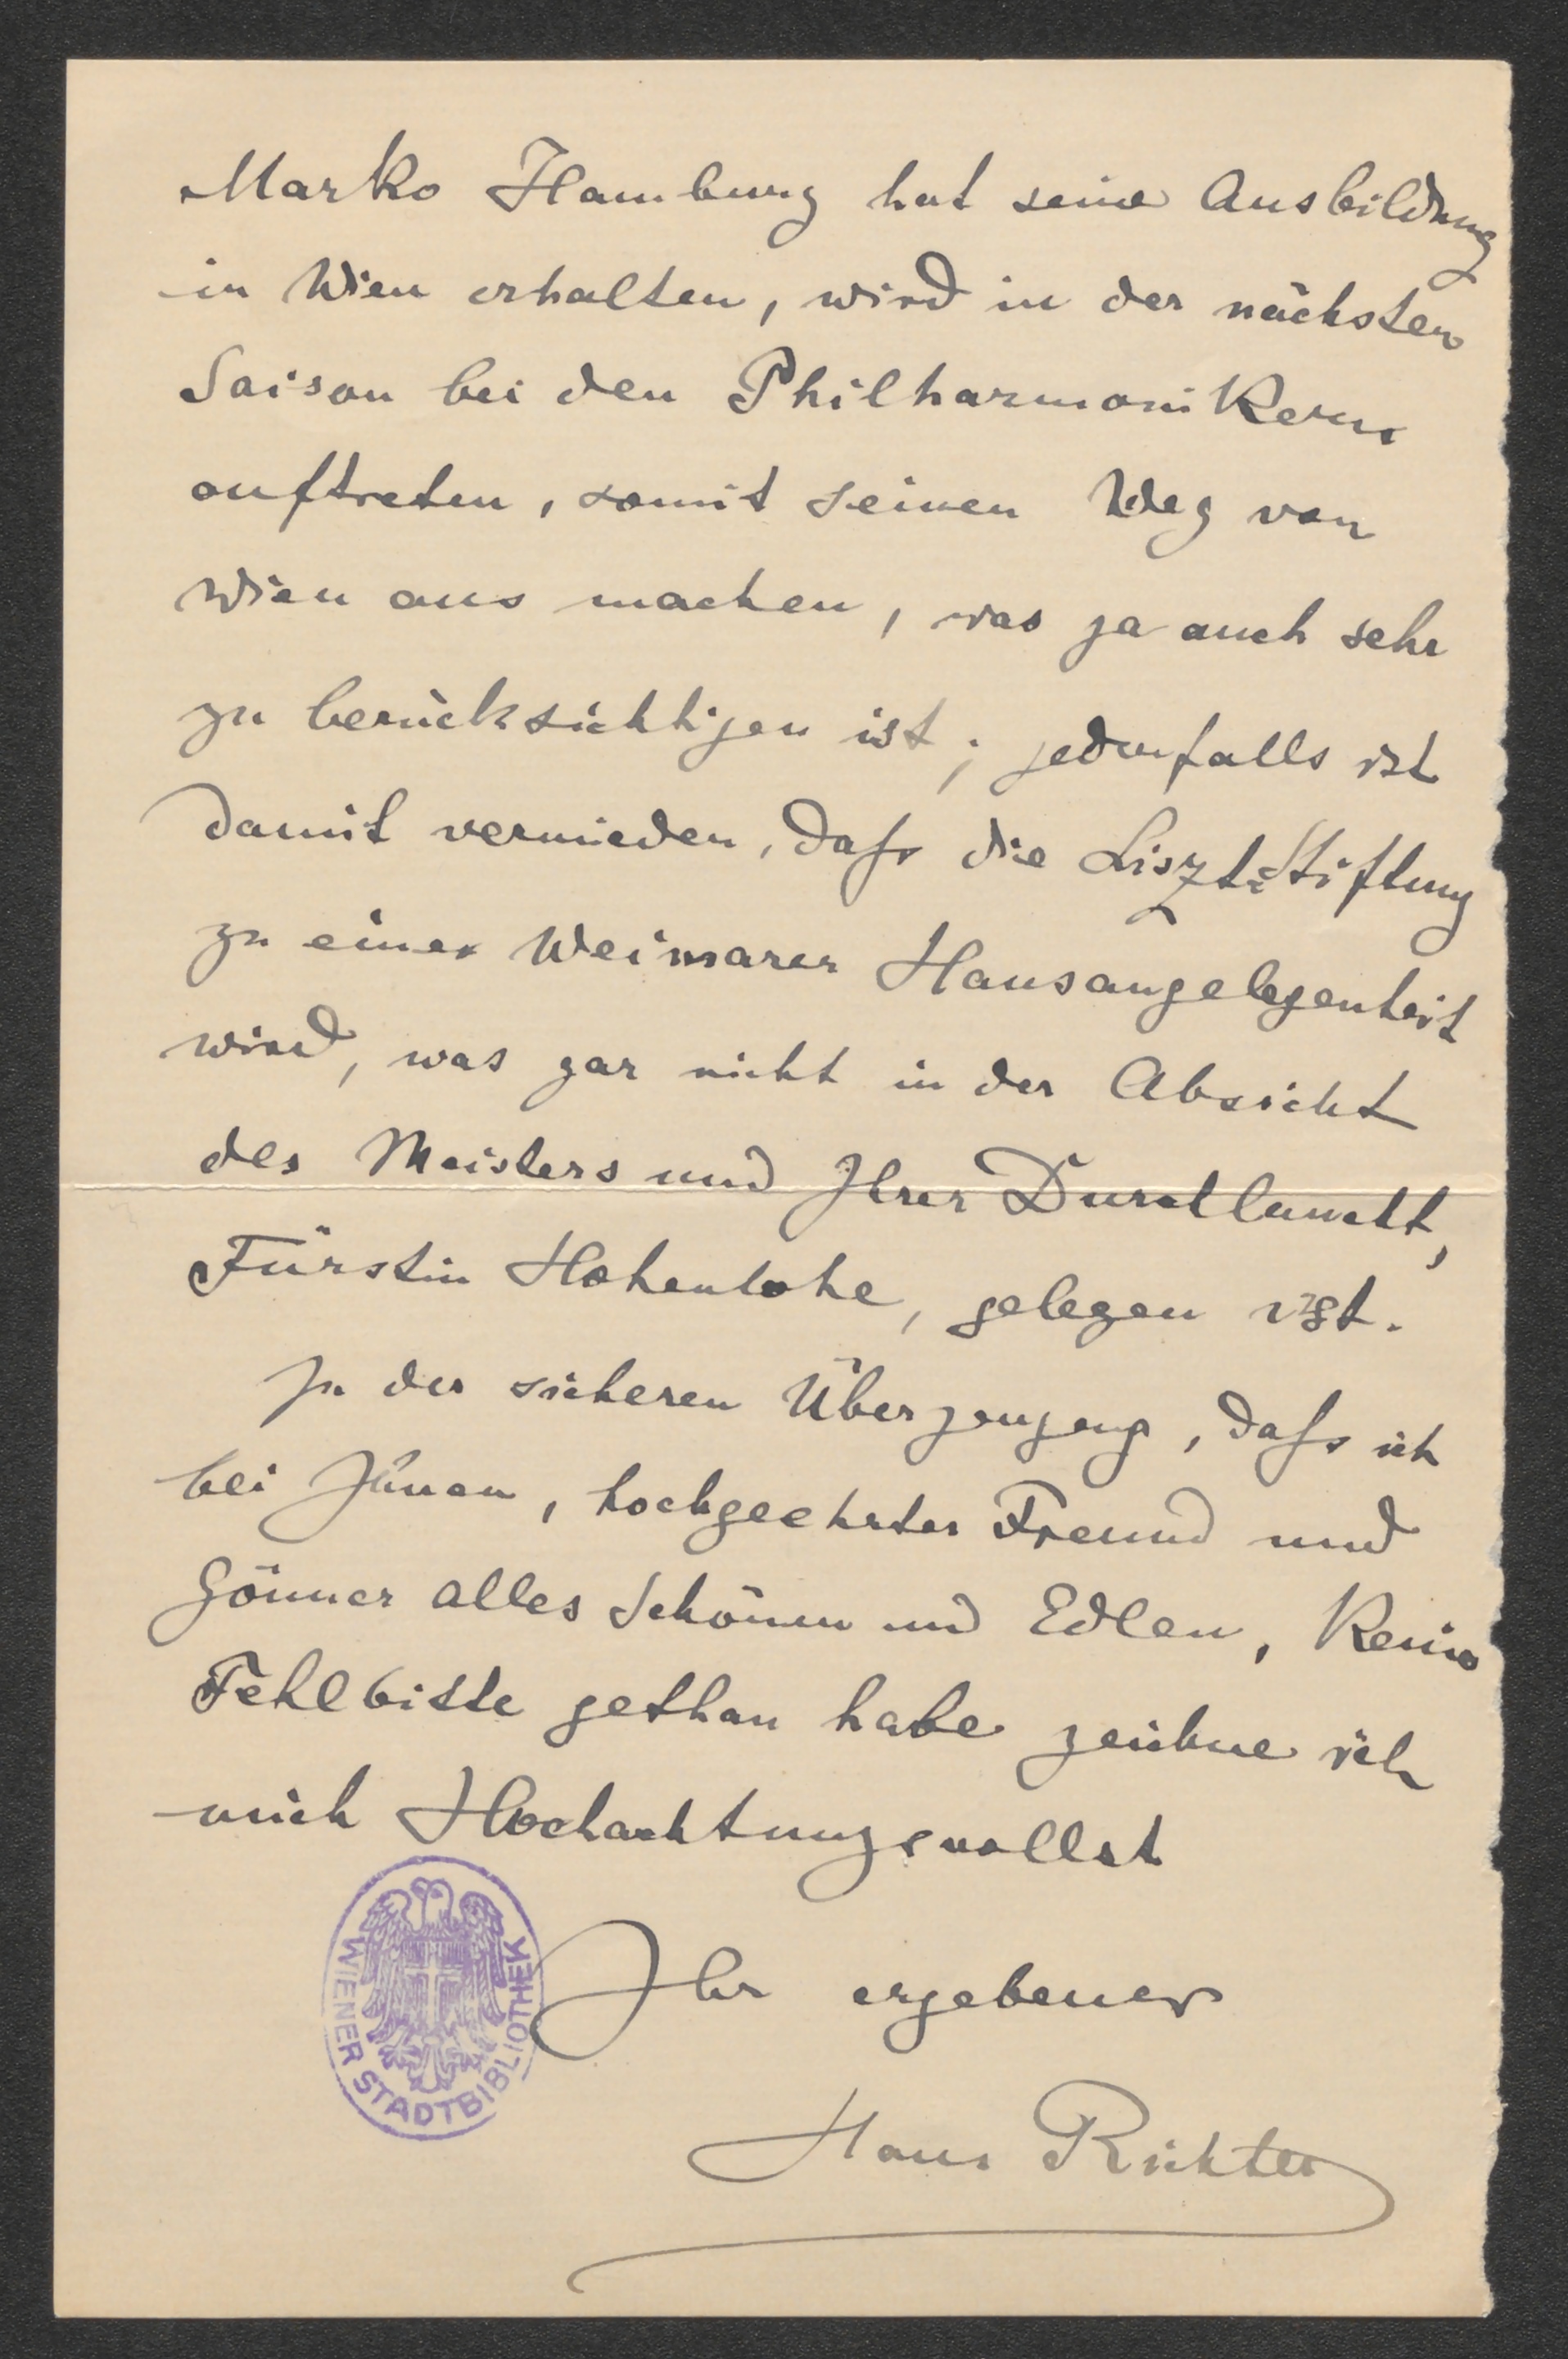 Marko Hamburg hat seine Ausbildung
in Wien erhalten, wird in der nächsten
Saison bei den Philharmonikern
auftreten, somit seinen Weg von
Wien aus machen, was ja auch sehr
zu berücksichtigen ist; jedenfalls ist
damit vermieden, dafs die Liszt=Stiftung
zu einer Weimarer Hausangelegenheit
wird, was gar nicht in der Absicht
des Meisters und Ihrer Durchlaucht,
Fürstin Hohenlohe, gelegen ist.
In der sicheren Überzeugung, dafs ich
bei Ihnen, hochgeehrter Freund und
Gönner alles Schönen und Edlen, keine
Fehlbitte gethan habe zeichne ich
mich Hochachtungsvollst
Ihr ergebener
Hans Richter
WIENER STADTBIBLIOTHEK